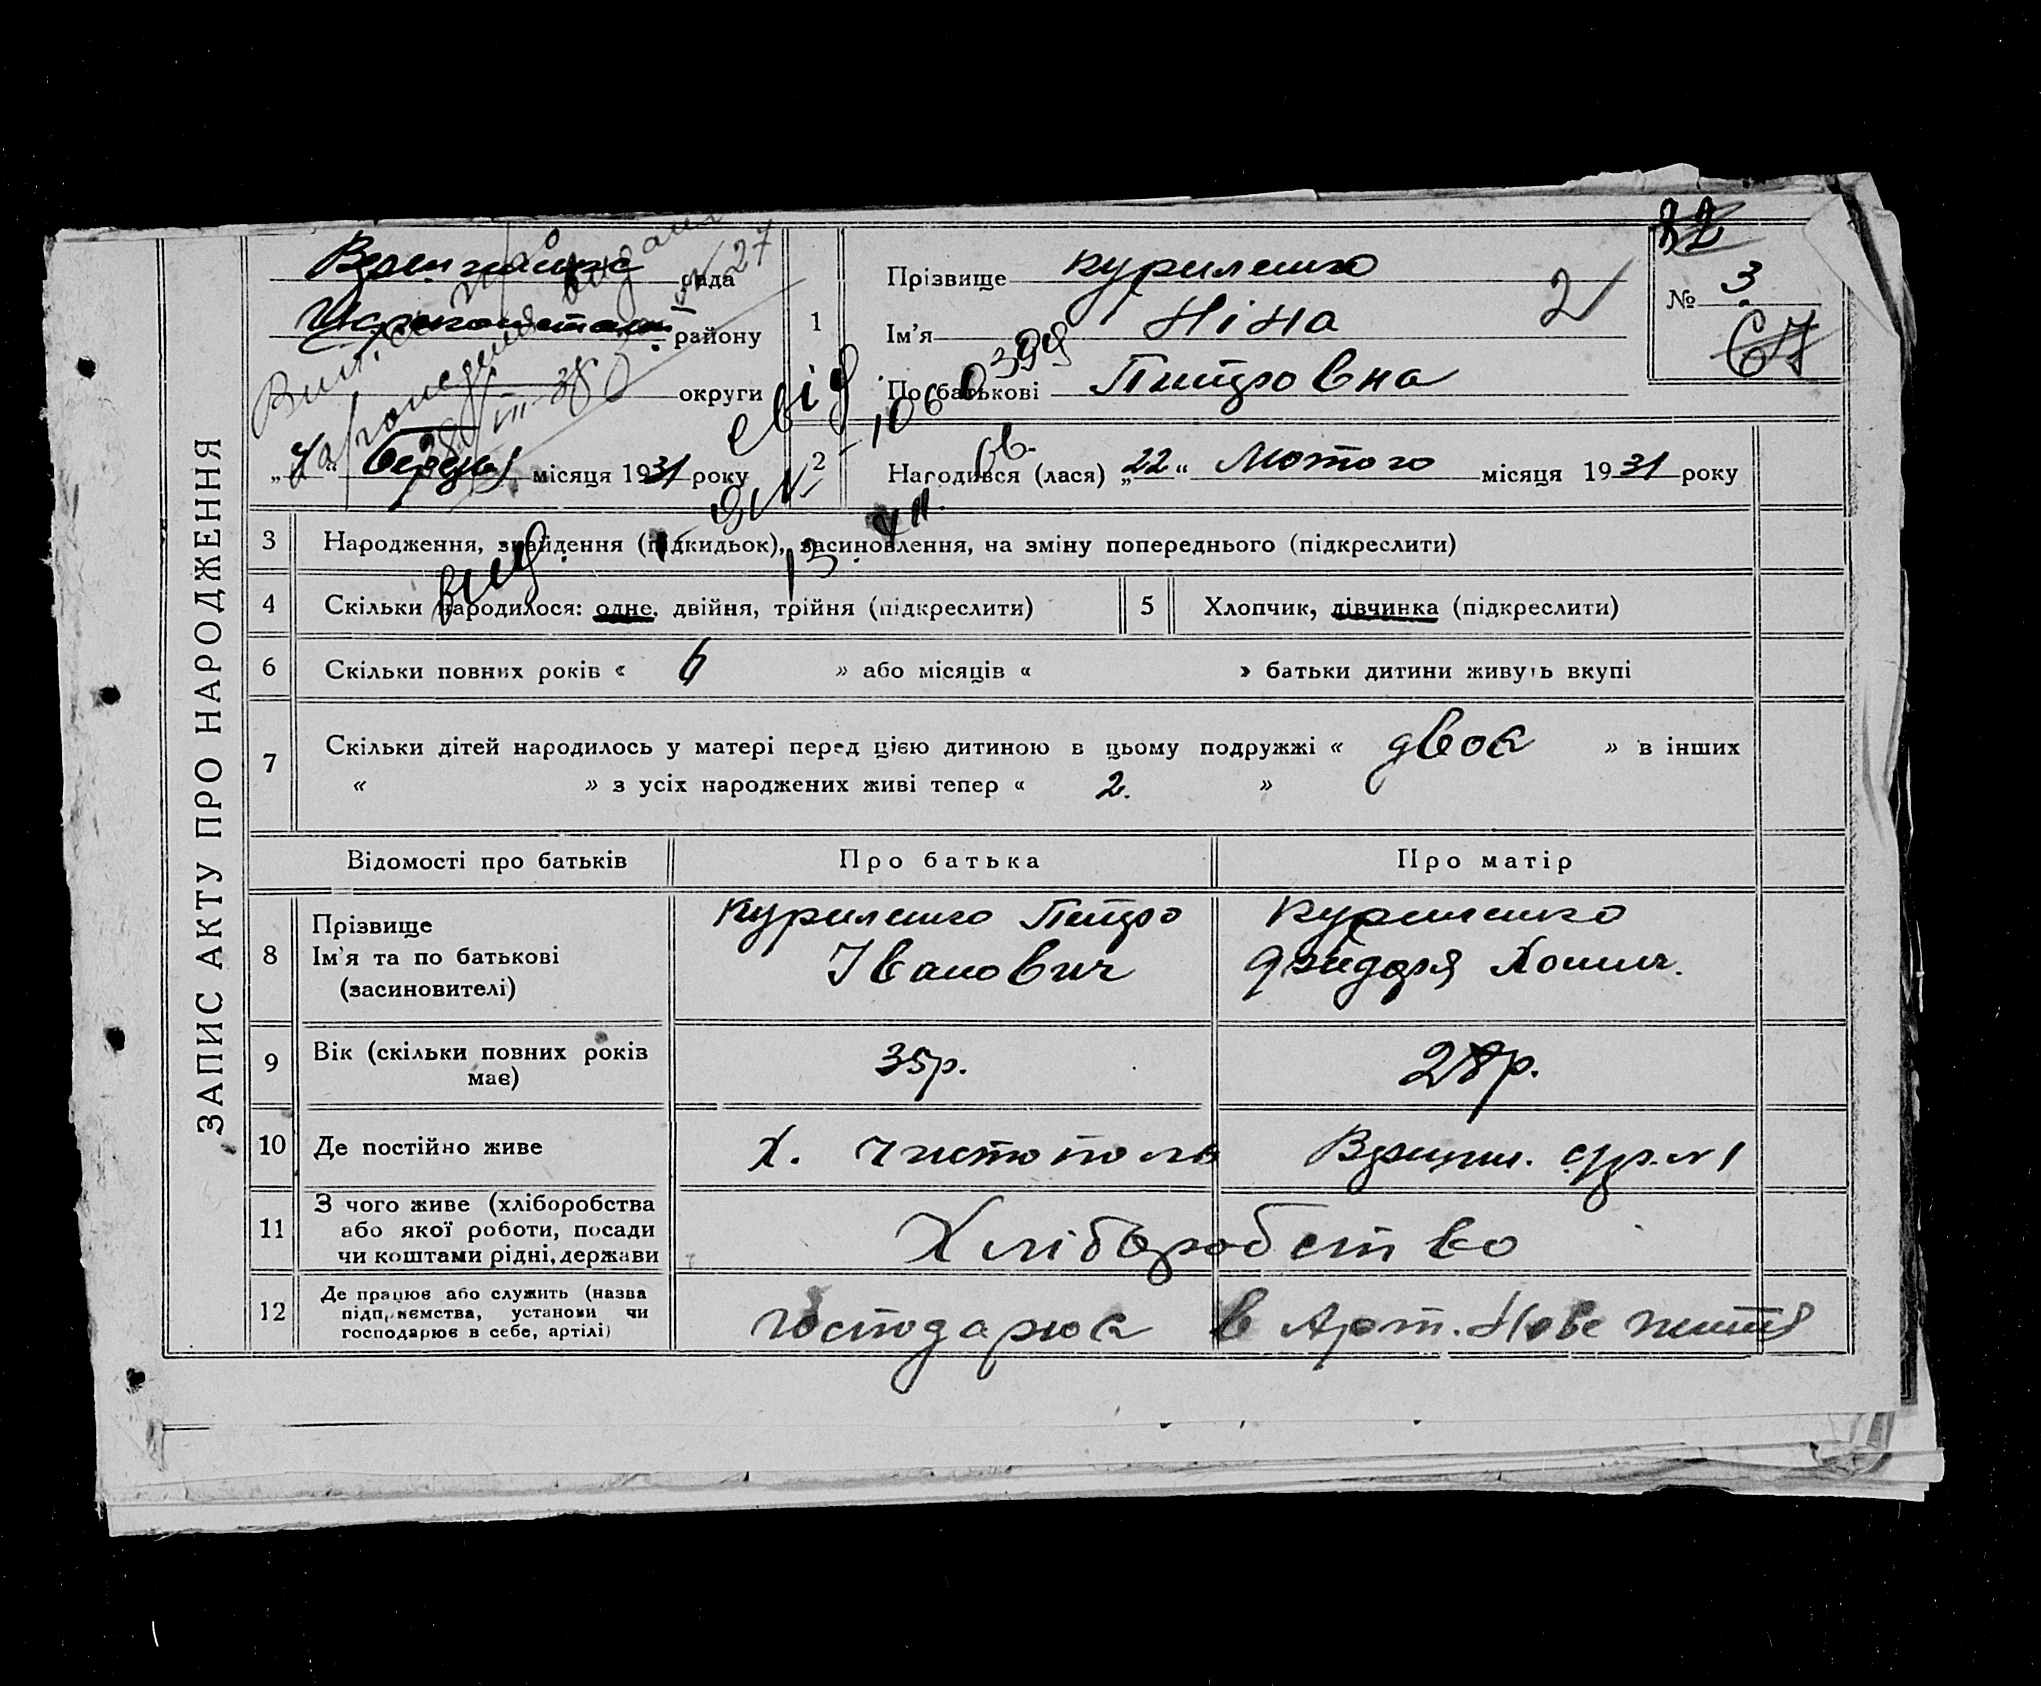 ЗАПИС АКТУ ПРО НАРОДЖЕННЯ
рада
району
округи
„7“ березня місяця 1931 року
1
Прізвище Куриленко
Ім'я Ніна
По батькові Питровна
2
32
№ 3
67
2 Народився (лася) „22“ Лютого місяця 1931 року
свід
10 60399
3 Народження, знайдення (підкидьок), засиновлення, на зміну попереднього (підкреслити)
4 Скільки народилося: одне, двійня, трійня (підкреслити)
5 Хлопчик, дівчинка (підкреслити)
6 Скільки повних років « 6 » або місяців « » батьки дитини живуть вкупі
7 Скільки дітей народилось у матері перед цією дитиною в цьому подружжі « двок » в інших
« » з усіх народжених живі тепер « 2. »
Відомості про батьків Про батька Про матір
8 Прізвище
Ім'я та по батькові
(засиновителі)
Куриленко Питро
Іванович
Куриленко
9 Вік (скільки повних років
має)
35р.
28р.
10 Де постійно живе Х. Чистополь
11 З чого живе (хліборобства
або якої роботи, посади
чи коштами рідні, держави
Хліборобство
12 Де працює або служить (назва
підприємства, установи чи
господарює в себе, артілі)
господарюк в Арт. Нове життя